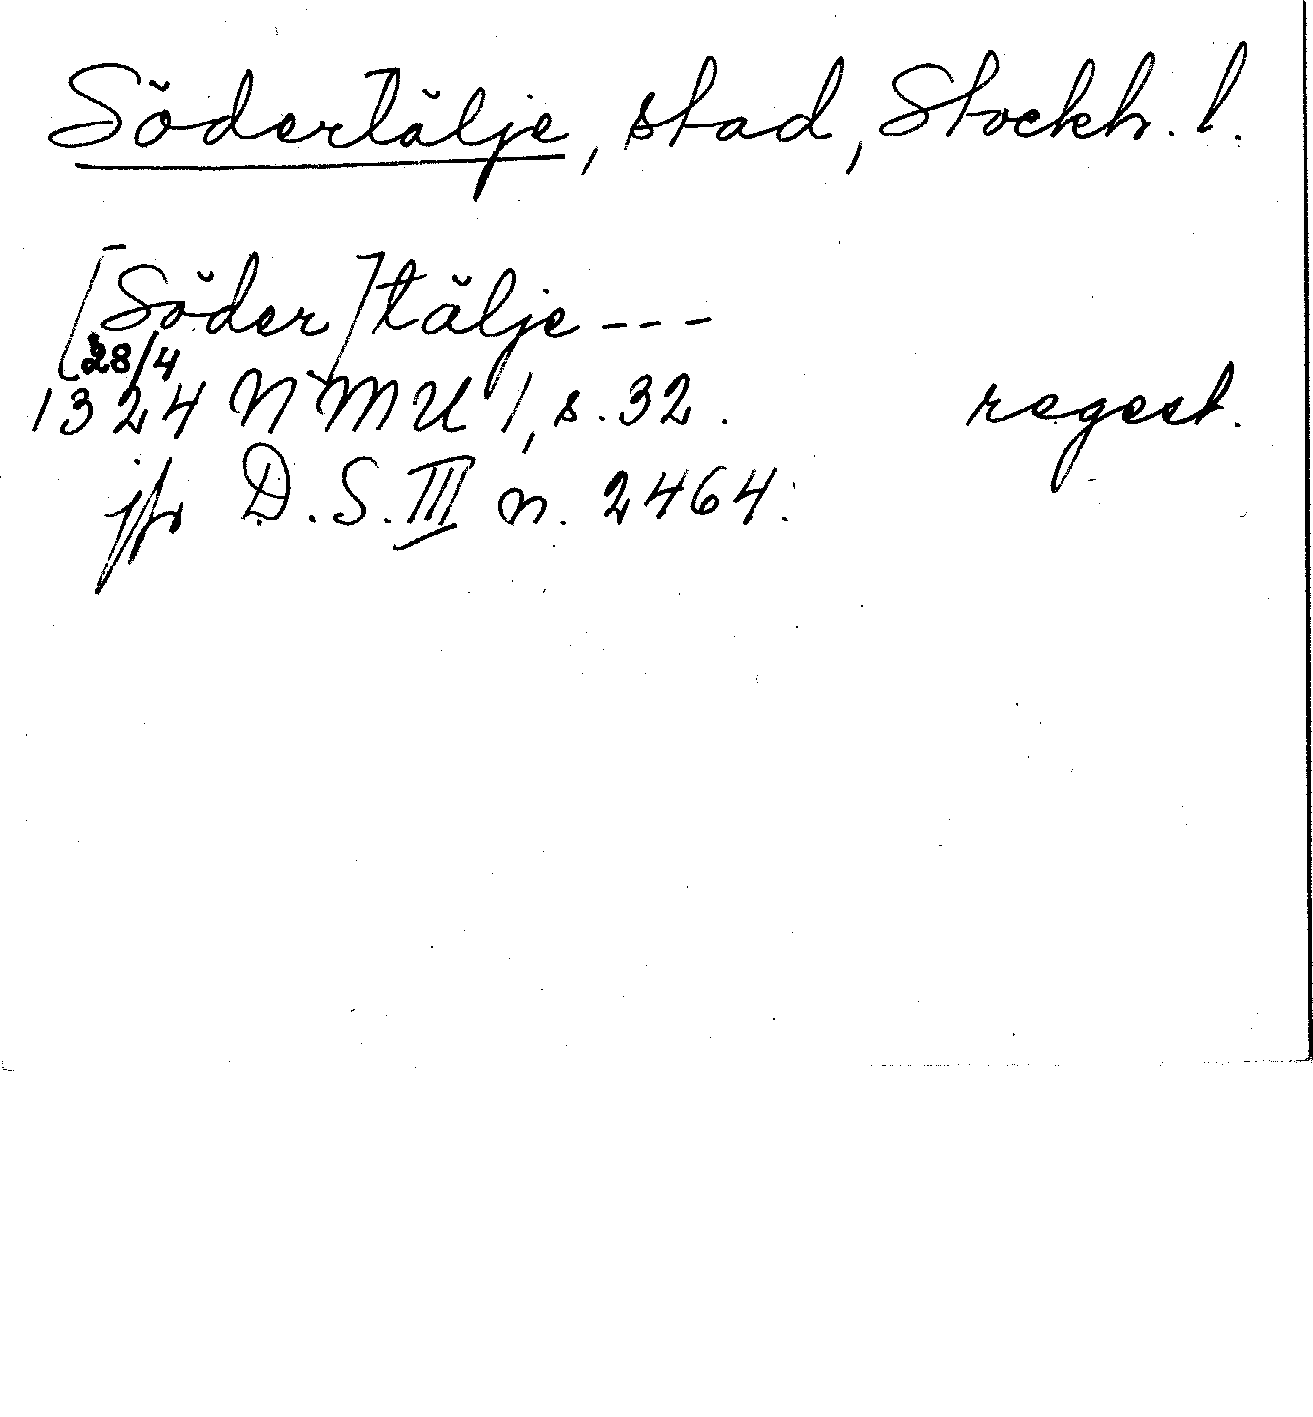 Södertälje, stad, Stockh. l.
[Söder]tälje---
28/4
1324 NMU 1, s. 32. regest.
jfr D.S. III n. 2464.